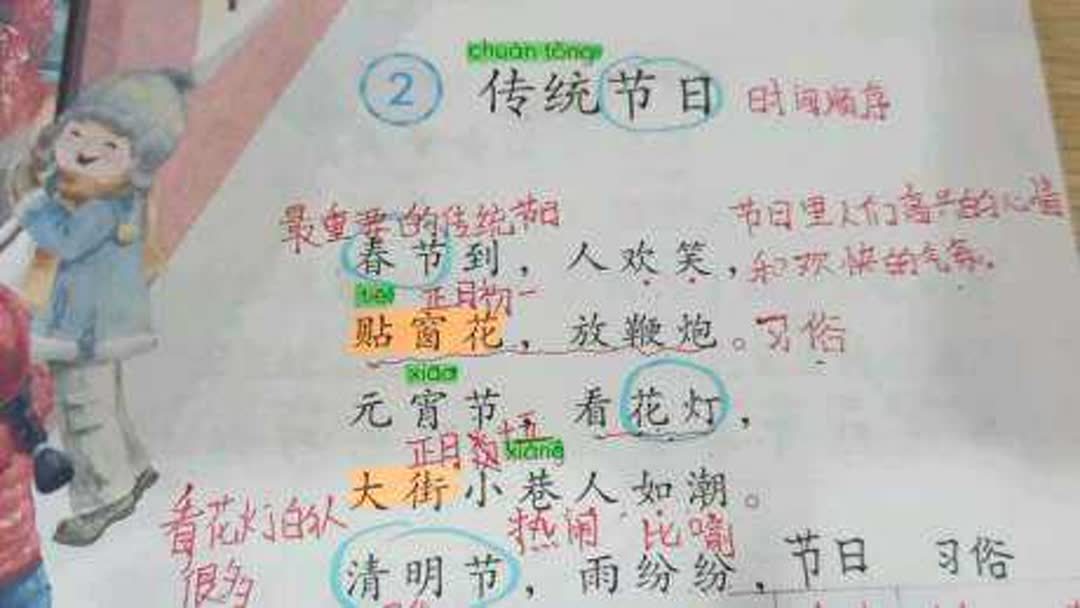 chuán tǒng
2 传统节日 时间顺序
最重要的传统节日 节日里人们高兴的心情
春节到，人欢笑，和欢快的气氛。
tiē 正月初一
贴窗花，放鞭炮。习俗
xiāo
元宵节，看花灯，
正月十五 xiàng
大街小巷人如潮。
看花灯的人 热闹 比喻
很多
清明节，雨纷纷，节日 习俗